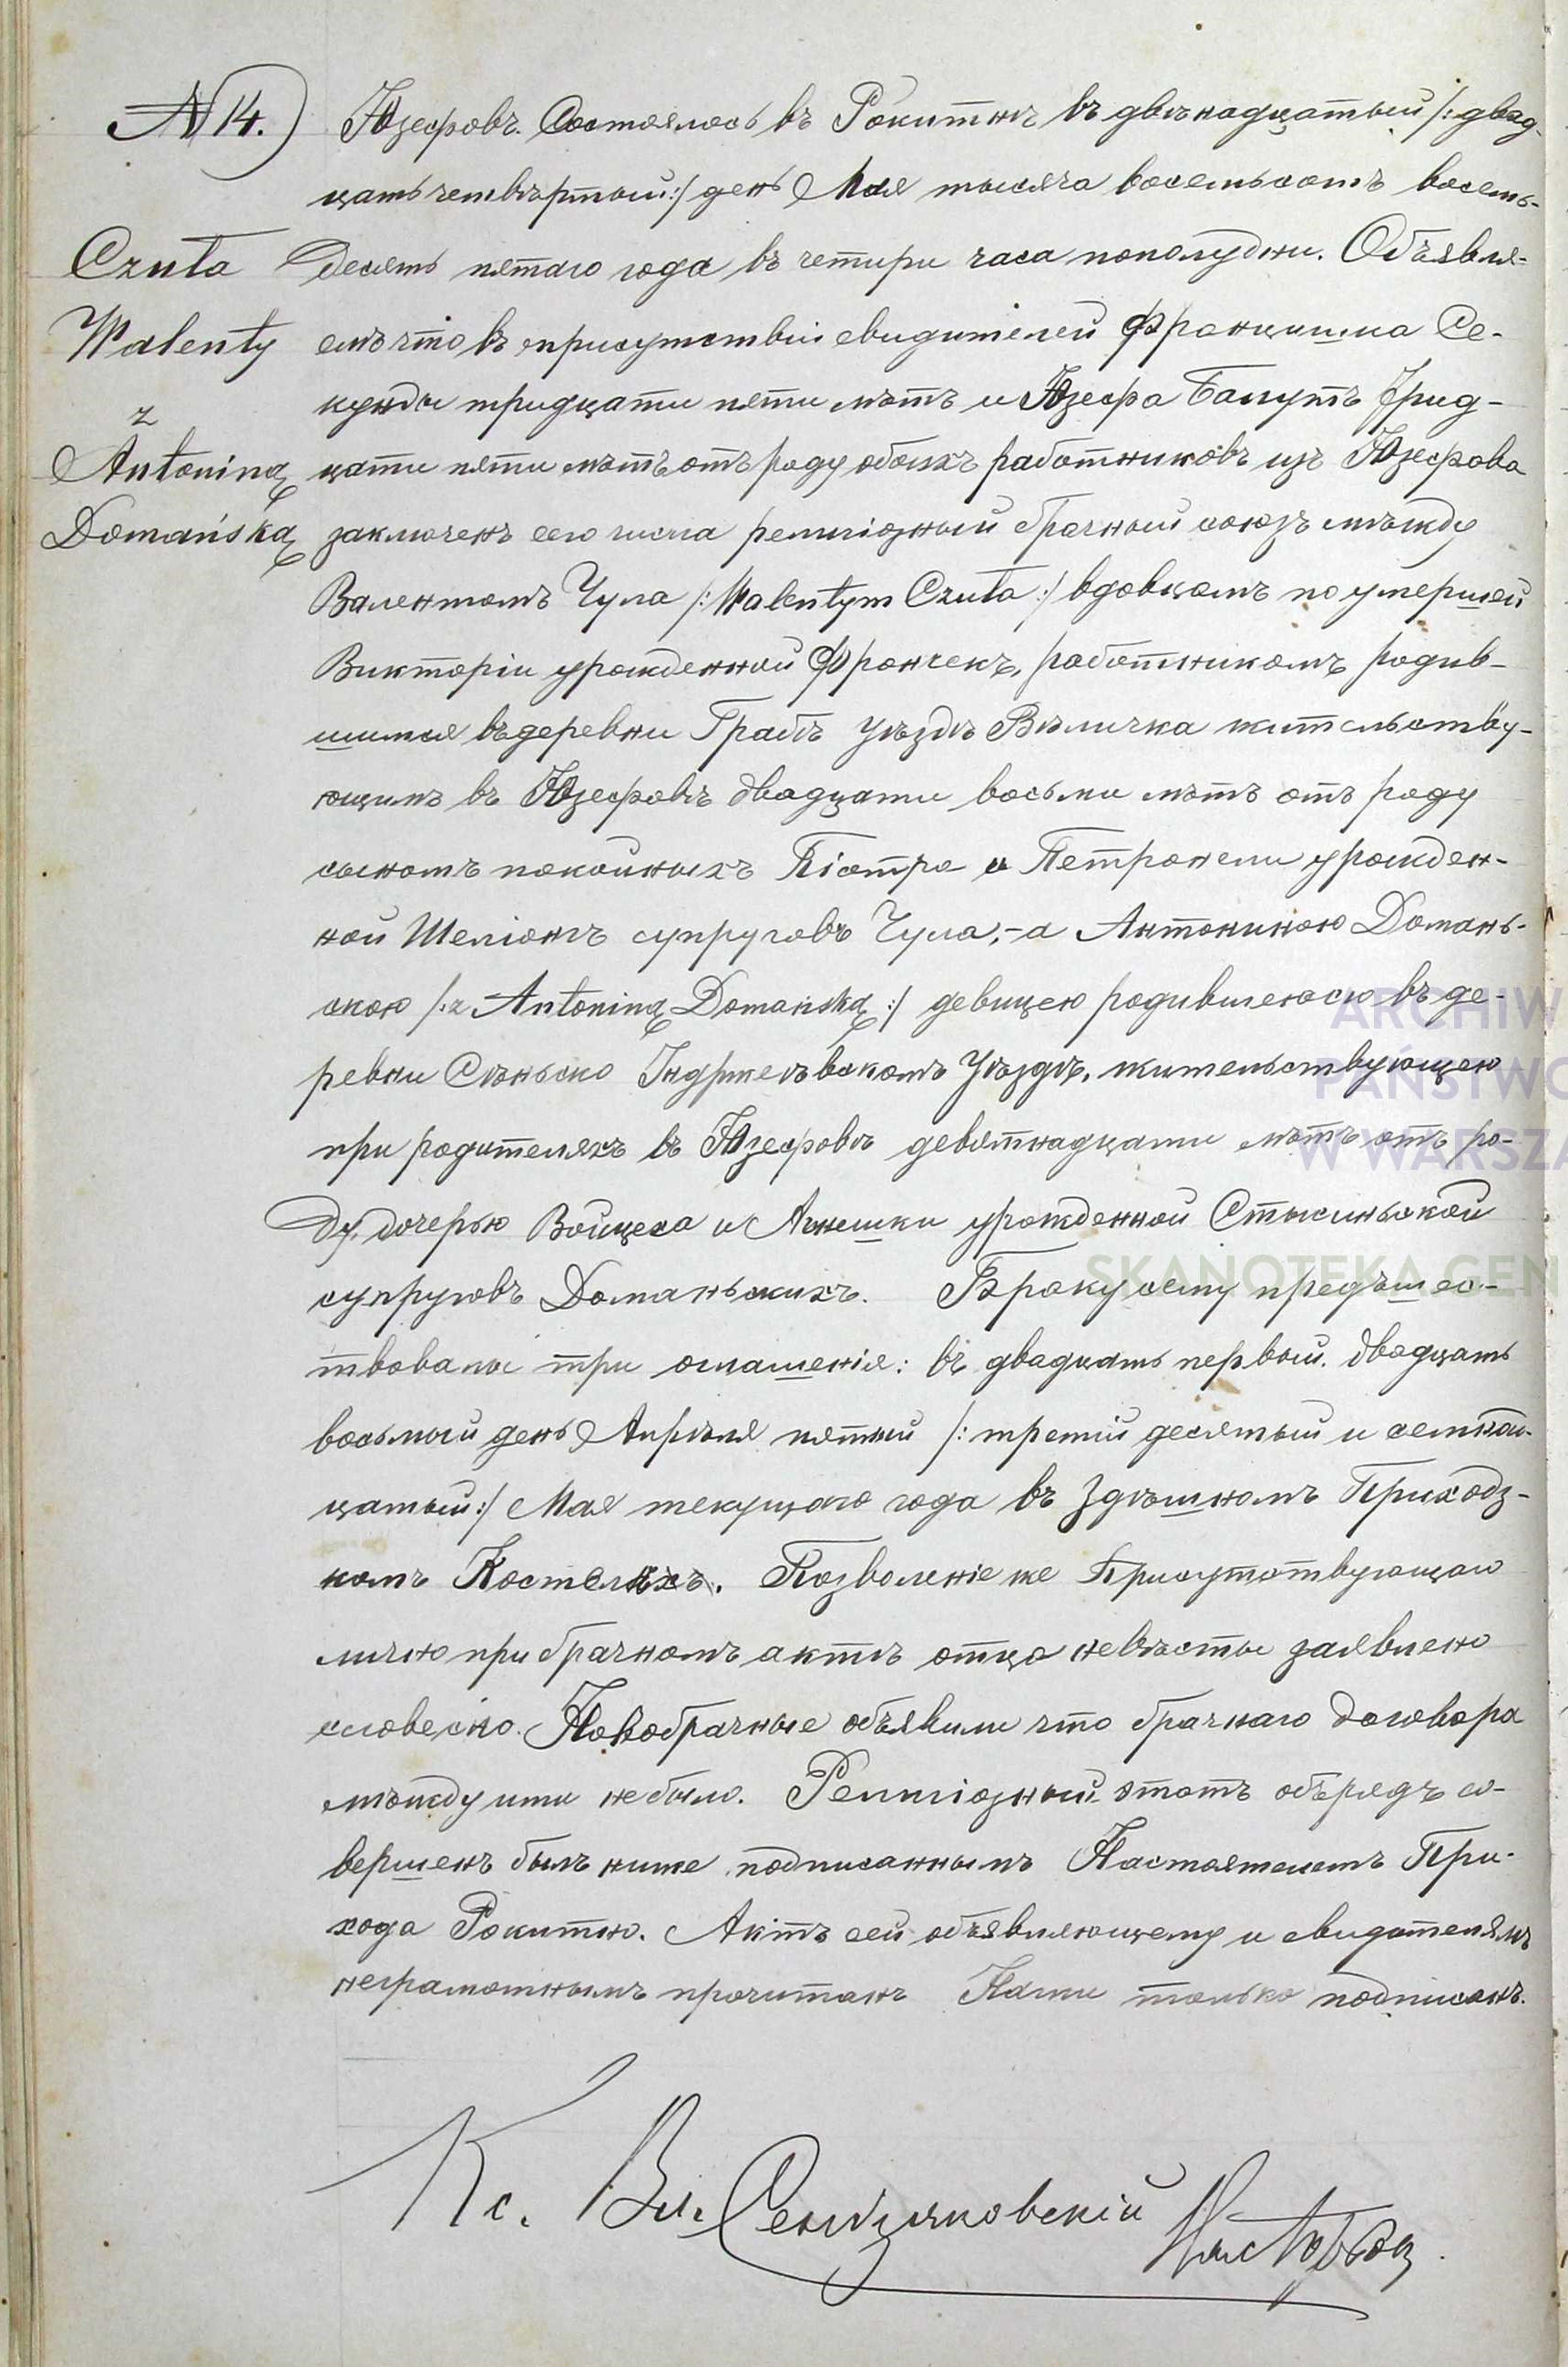 N 14.) Юзефовъ. Состоялось въ Рокитнѣ въ двѣнадцатый /:двад-
цать четвѣртый:/ день Мая тысяча восемьсотъ восемь-
Czuła
десять пятаго года въ четыри часа пополудни. Объявля-
Walenty
емъ что въ присутствіи свидителей Францишка Се-
кунды тридцати пяти лѣтъ и Юзефа Балутъ трид-
z
Antoniną
цати пяти лѣтъ отъ роду обоихъ работниковъ изъ Юзефова
Domańską
заключенъ сего числа религіозный брачный союзъ мѣжду
Валентомъ Чула /:Walentym Czuła:/ вдовцомъ по умершей
Викторіи урожденной Франчекъ, работникомъ родив-
шимся въ деревни Грабѣ уѣздѣ Вѣличка жительству-
ющимъ въ Юзефовѣ двадцати восьми лѣтъ отъ роду
сыномъ покойныхъ Піотра и Петронели урожден-
ной Шеліонгъ супруговъ Чула,-а Антониною Домань-
скою /:z Antoniną Domańską:/ девицею родившеюсю въ де-
ревни Сѣньско Індржеѣвскомъ Уѣздѣ, жительствующею
при родителяхъ въ Юзефовѣ девятнадцати лѣтъ отъ ро-
ду, дочерью Войцеха и Агнешки урожденной Стысиньской
супруговъ Доманьскихъ. Браку сему предъшес-
твовали три оглашенія: въ двадцать первый. двадцать
восьмый день Апрѣля пятый /:третій десятый и семнад-
цатый:/ Мая текущаго года въ Здѣшномъ Приходз-
комъ Костелѣхъ. Позволеніе же Присутствующаго
лично при брачномъ актѣ отца невѣсты заявлено
словесно. Новобрачные объявили что брачнаго договора
мѣжду ими не было. Религіозный этотъ обърядъ со-
вершенъ былъ ниже подписаннымъ Настоятелемъ При-
хода Рокитно. Актъ сей объявляющему и свидителямъ
неграмотнымъ прочитанъ Нами только подписанъ.
Кс. Вл. Сендзиковскій
ARCHIW
PAŃSTWO
W WARSZA
SKANOTEKA GEN